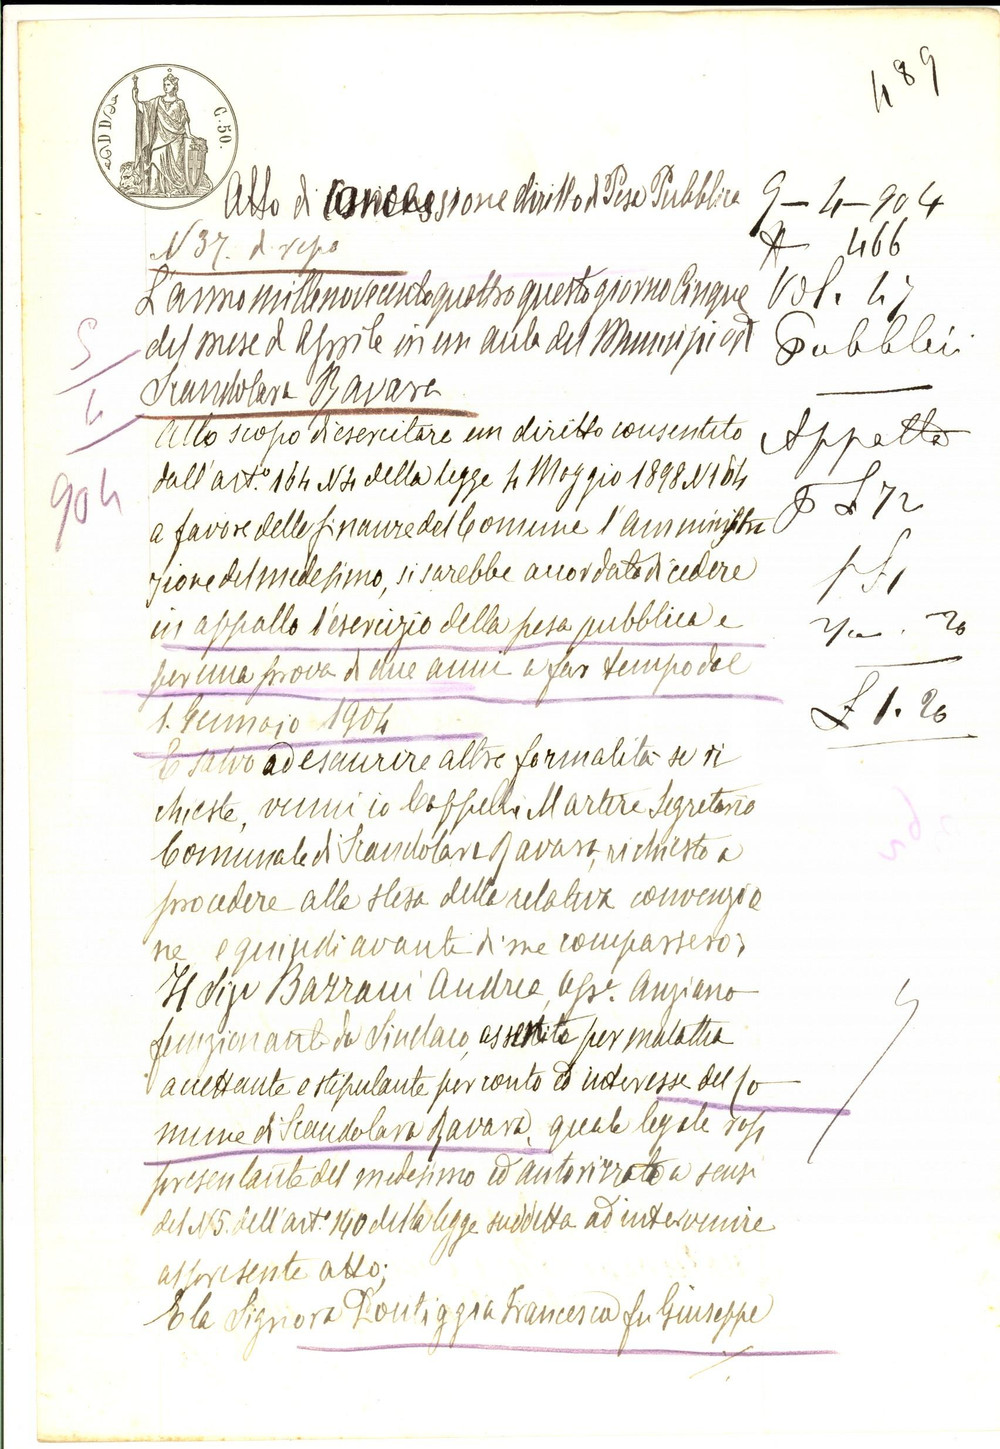 489
C. 50.
Atto di concessione diritto di Pesa Pubblica
N 37. d repo
L'anno millenovecentoquattro questo giorno Cinque
del mese d Aprile in un aula del Municipio di
Scandolara Ravara
Allo scopo di esercitare un diritto consentito
dall' art.° 164 N 4 della legge 4 Maggio 1898 N 164
a favore delle finanze del Comune l'amministra
zione del medesimo, si sarebbe accordato di cedere
in appalto l'esercizio della pesa pubblica e
per una prova di due anni a far tempo dal
1. Gennaio 1904
E salvo ad esaurire altre formalità se ri
chieste, venni io Cappelli Martire Segretario
Comunale di Scandolara Ravara, richiesto a
procedere alla stesa della relativa convenzio
ne e quindi avante di me comparsero:
Il Sigr Bazzani Andrea, Asse. Anziano
funzionante da Sindaco, assentito per malattia
accettante e stipulante per conto ed interesse del Co
mune di Scandolara Ravara, quale legale rap
presentante del medesimo ed autorizzato a sensi
del N 5. dell' art.° 140 della legge suddetta ad intervenire
al presente atto;
E la Signora Pontiggia Francesca fu Giuseppe
9-4-904
466
Vol. 47
Pubblici
Appalto
£ 72
£ 1
20
£ 1.20
5/4
904